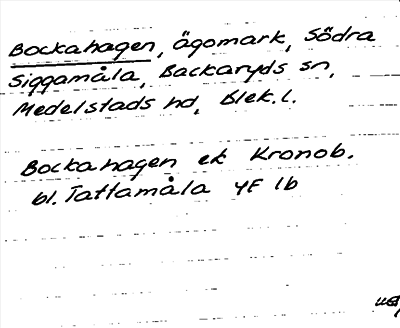 Bockahagen, ägomark, Södra
Siggamåla, Backaryds sn,
Medelstads hd, Blek.l.
Bockahagen ek Kronob.
bl. Tattamåla YF 1b